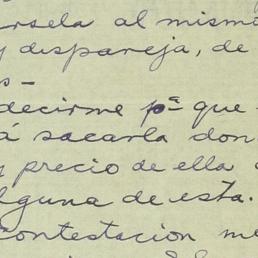 rsela al mismo
y despareja, de
s-
decirme pª que
á sacarla don
y precio de ella
lguna de esta.
contestacion me